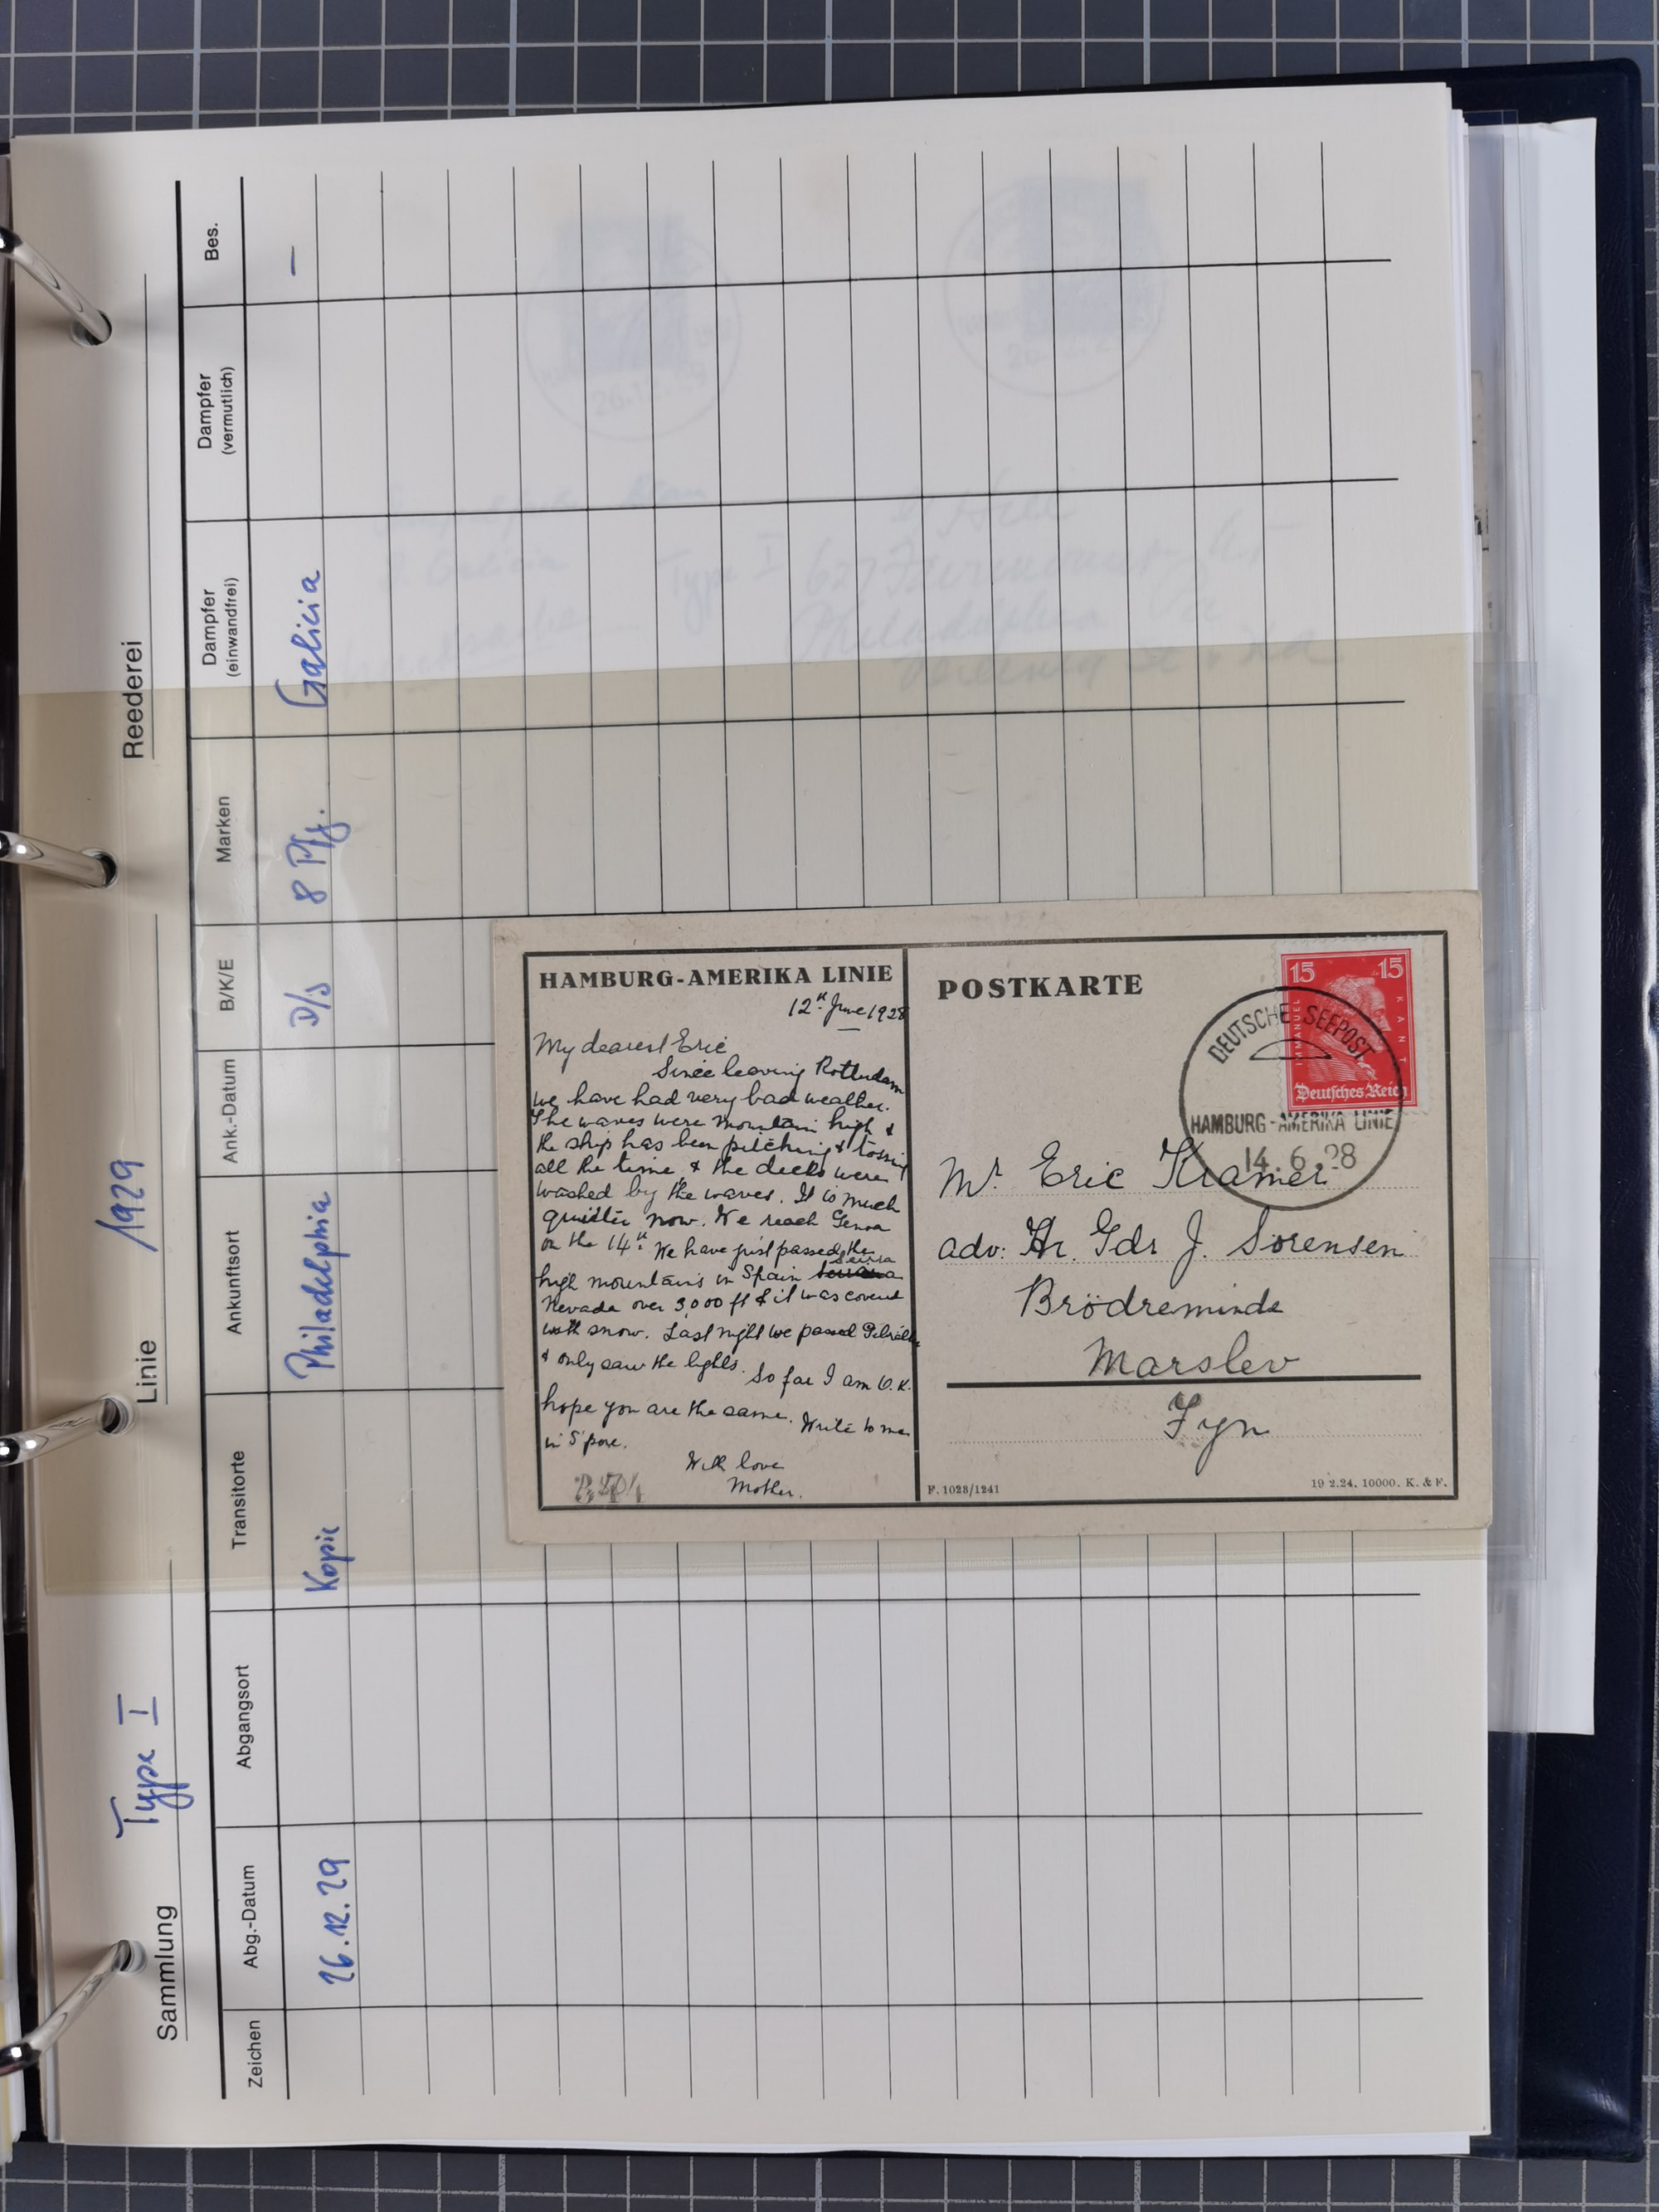 Sammlung Type I Linie 1929 Reederei
Zeichen Abg.-Datum Abgangsort Transitorte Ankunftsort Ank.-Datum B/K/E Marken Dampfer (einwandfrei) Dampfer (vermutlich) Bes.
26.12.29 Kopie Philadelphia D/s 8 Pfg. Galicia —
HAMBURG-AMERIKA LINIE
12th June 1928
My dearest Eric
Since leaving Rotterdam
we have had very bad weather.
The waves were mountain high &
the ship has been pitching & tossing
all the time & the decks were
washed by the waves. It is much
now. We reach Genoa
on the 14th. We have just passed the
high mountains in Spain
Nevada over 3,000 ft & it was covered
with snow. Last night we passed
& only saw the lights. So far I am O.K.
hope you are the same. Write to me
in S'pore.
With love
Mother.
POSTKARTE
15 15
IMMANUEL KANT
Deutsches Reich
DEUTSCHE SEEPOST
HAMBURG-AMERIKA LINIE
14.6.28
Mr. Eric Kramer
adr: Hr. Gdr J. Sorensen
Brödreminde
Marslev
Fyn
F. 1028/1241
19 2.24. 10000. K. & F.
Type I